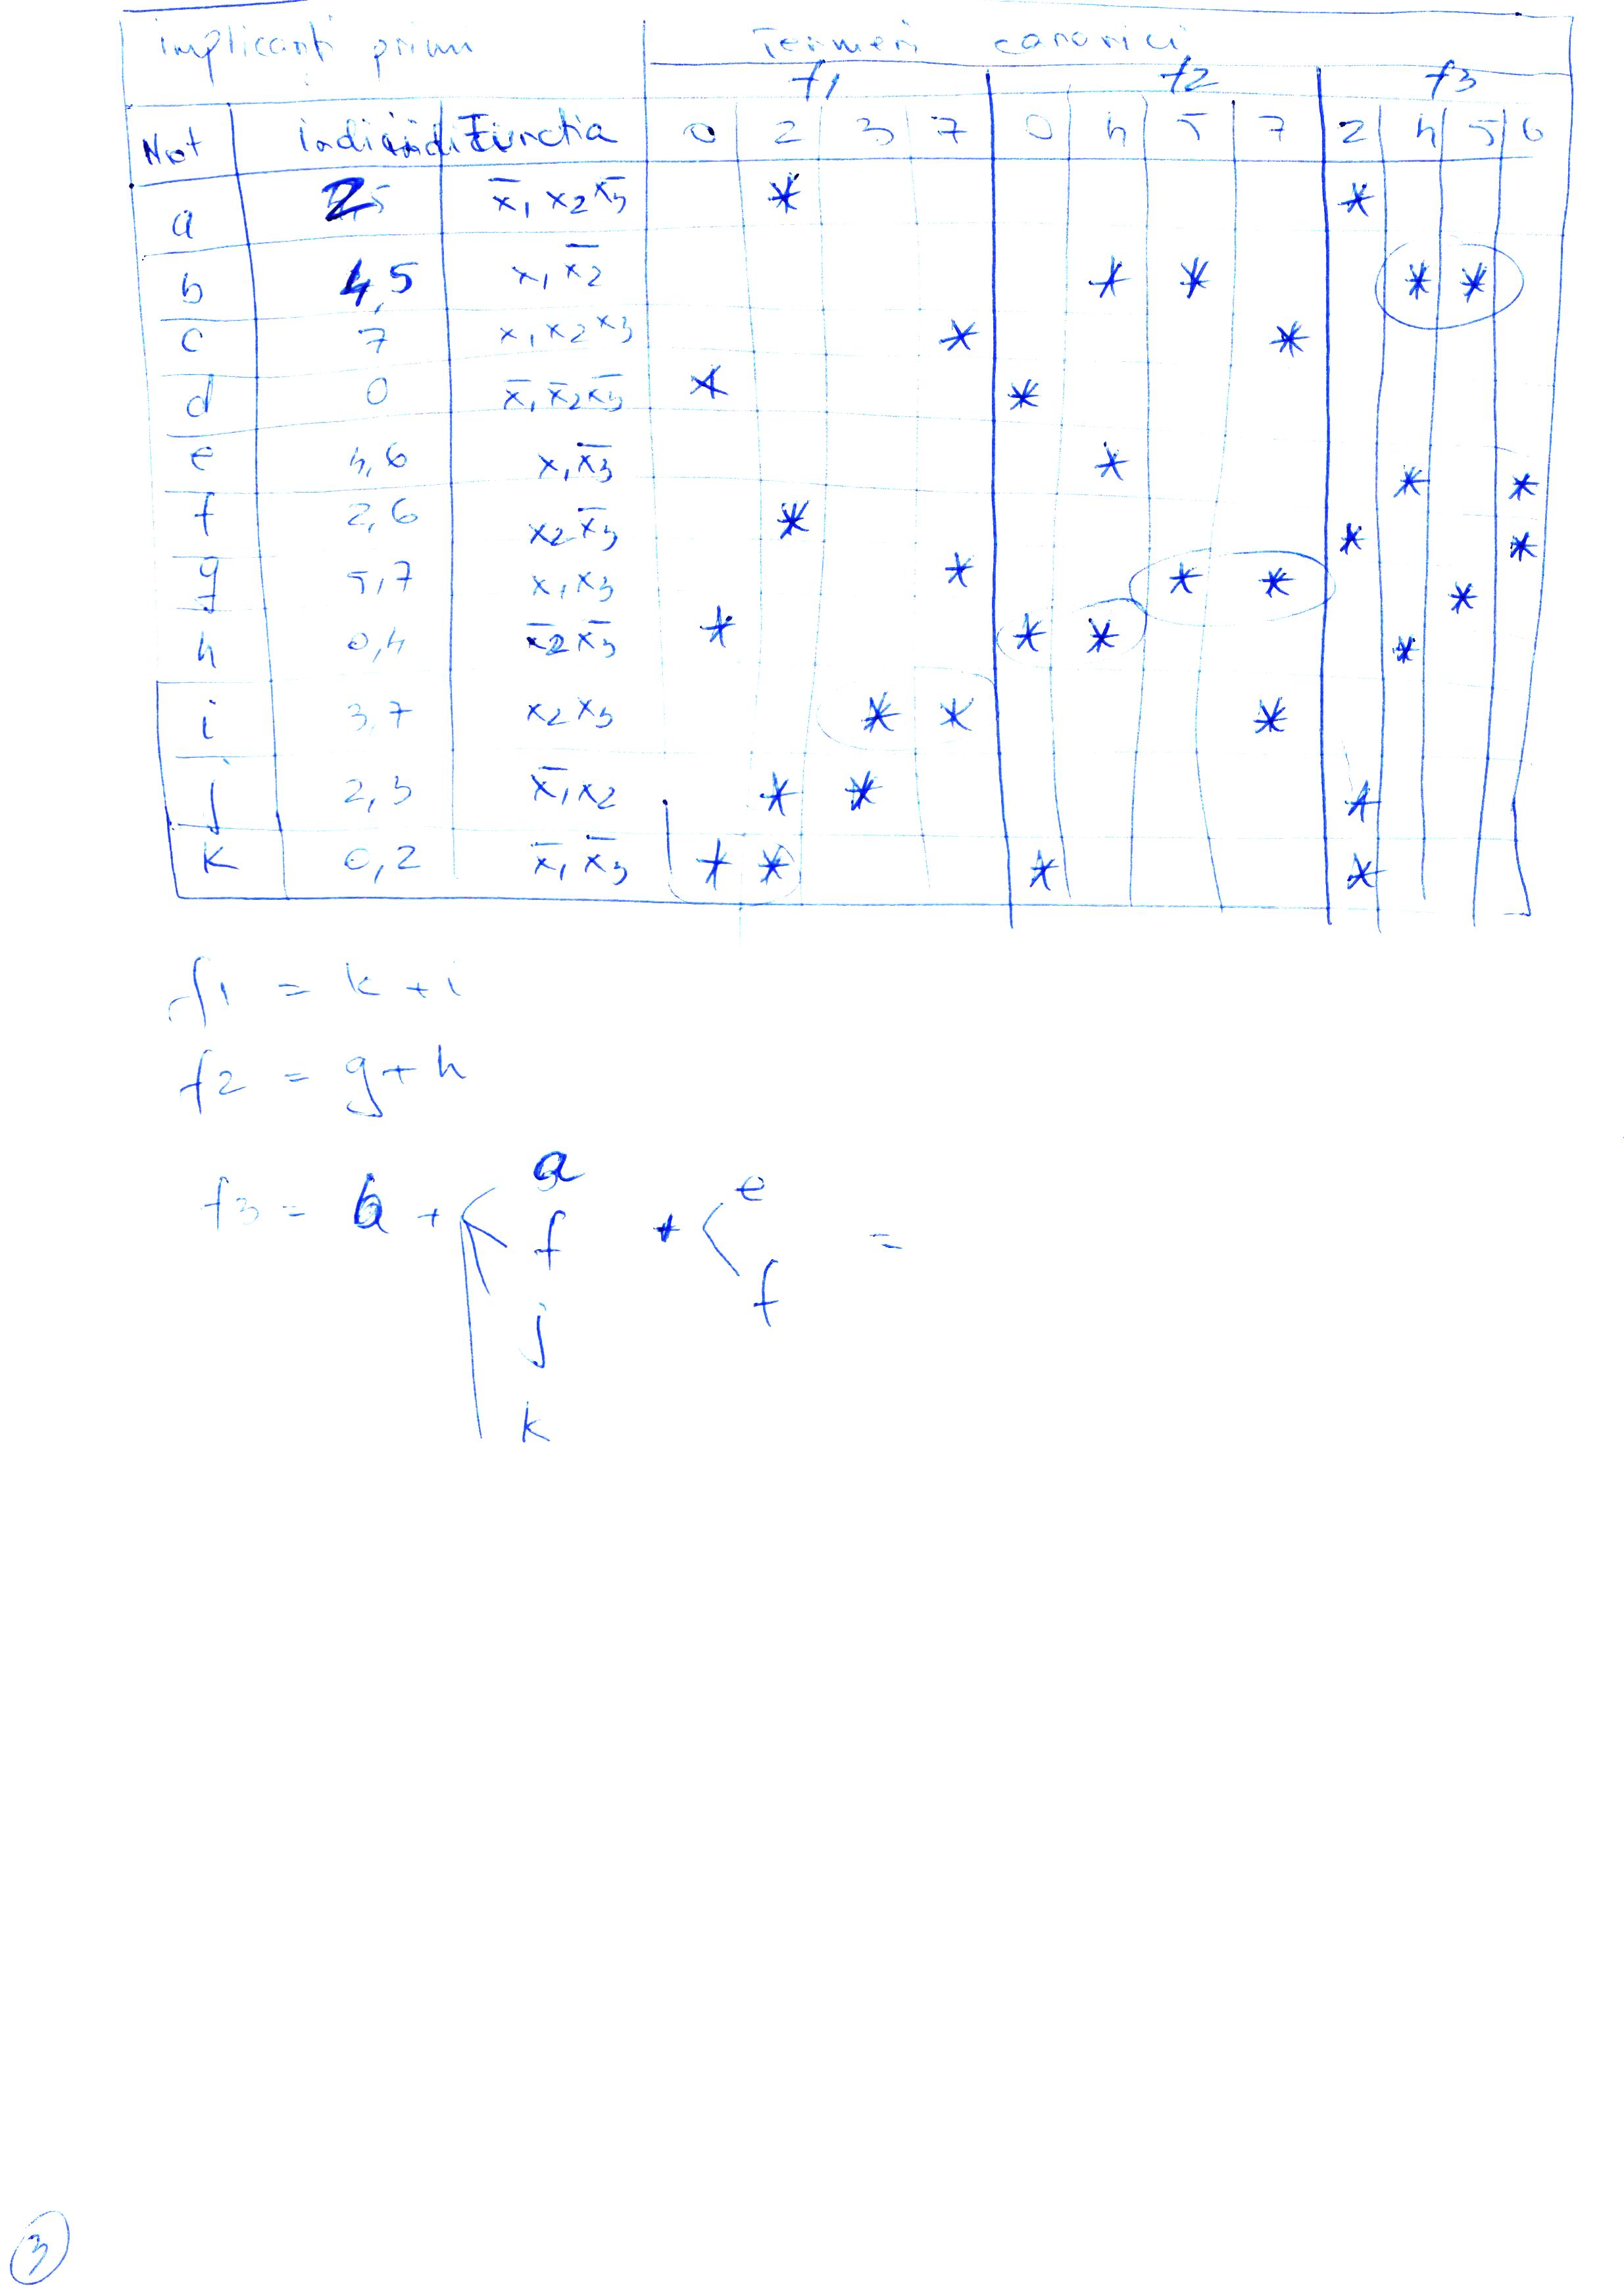 implicanti primi Termeni canonici
f1 f2 f3
Not indici Functia 0 2 3 7 0 4 5 7 2 4 5 6
a 2 x̅1 x2 x̅3 * *
b 4,5 x1 x̅2 * * * *
c 7 x1 x2 x3 * *
d 0 x̅1 x̅2 x̅3 * *
e 4,6 x1 x̅3 * * *
f 2,6 x2 x̅3 * * *
g 5,7 x1 x3 * * * *
h 0,4 x̅2 x̅3 * * * *
i 3,7 x2 x3 * * *
j 2,3 x̅1 x2 * * *
k 0,2 x̅1 x̅3 * * * *
f1 = k + i
f2 = g + h
f3 = b + < a + < e =
f f
j
k
3